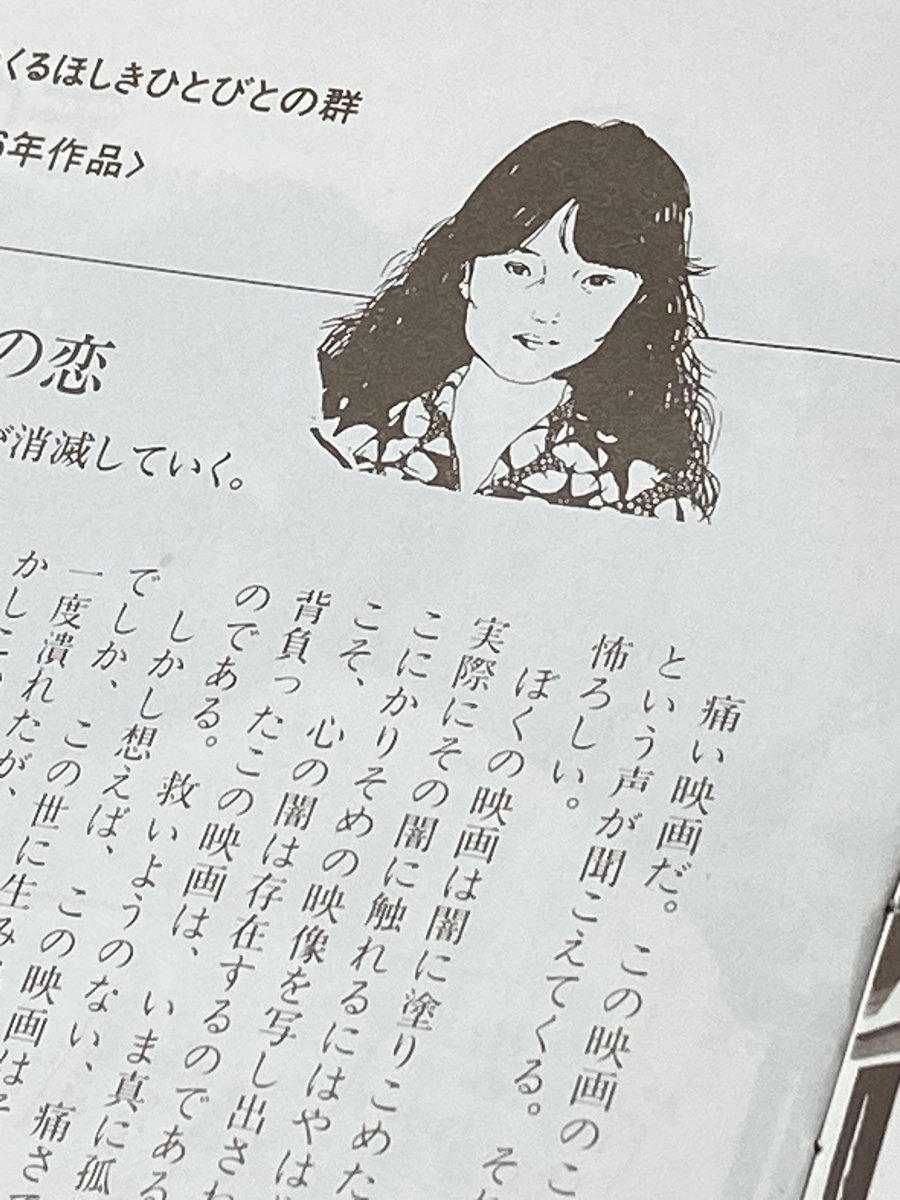 くるほしきひとびとの群
6年作品>
の恋
が消滅していく。
痛い映画だ。この映画のこ
という声が聞こえてくる。それ
怖ろしい。
ぼくの映画は闇に塗りこめた
実際にその闇に触れるにはやは
こにかりそめの映像を写し出され
こそ、心の闇は存在するのである
背負ったこの映画は、いま真に孤
のである。救いようのない、痛さで
しかし想えば、この映画は
でしか、この世に生み
一度潰れたが、
かし